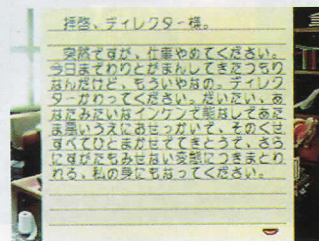 拝啓、ディレクター様。
突然ですが、仕事やめてください。
今日までわりとがまんしてきたつもり
なんだけど、もういやなの。ディレク
ターかわってください。だいたい、あ
なたみたいなインケンで能なしであた
ま悪いうえにおせっかいで、そのくせ
すべてひとまかせでてきとうで、さら
にすがたもみせない変態につきまとわ
れる、私の身にもなってください。